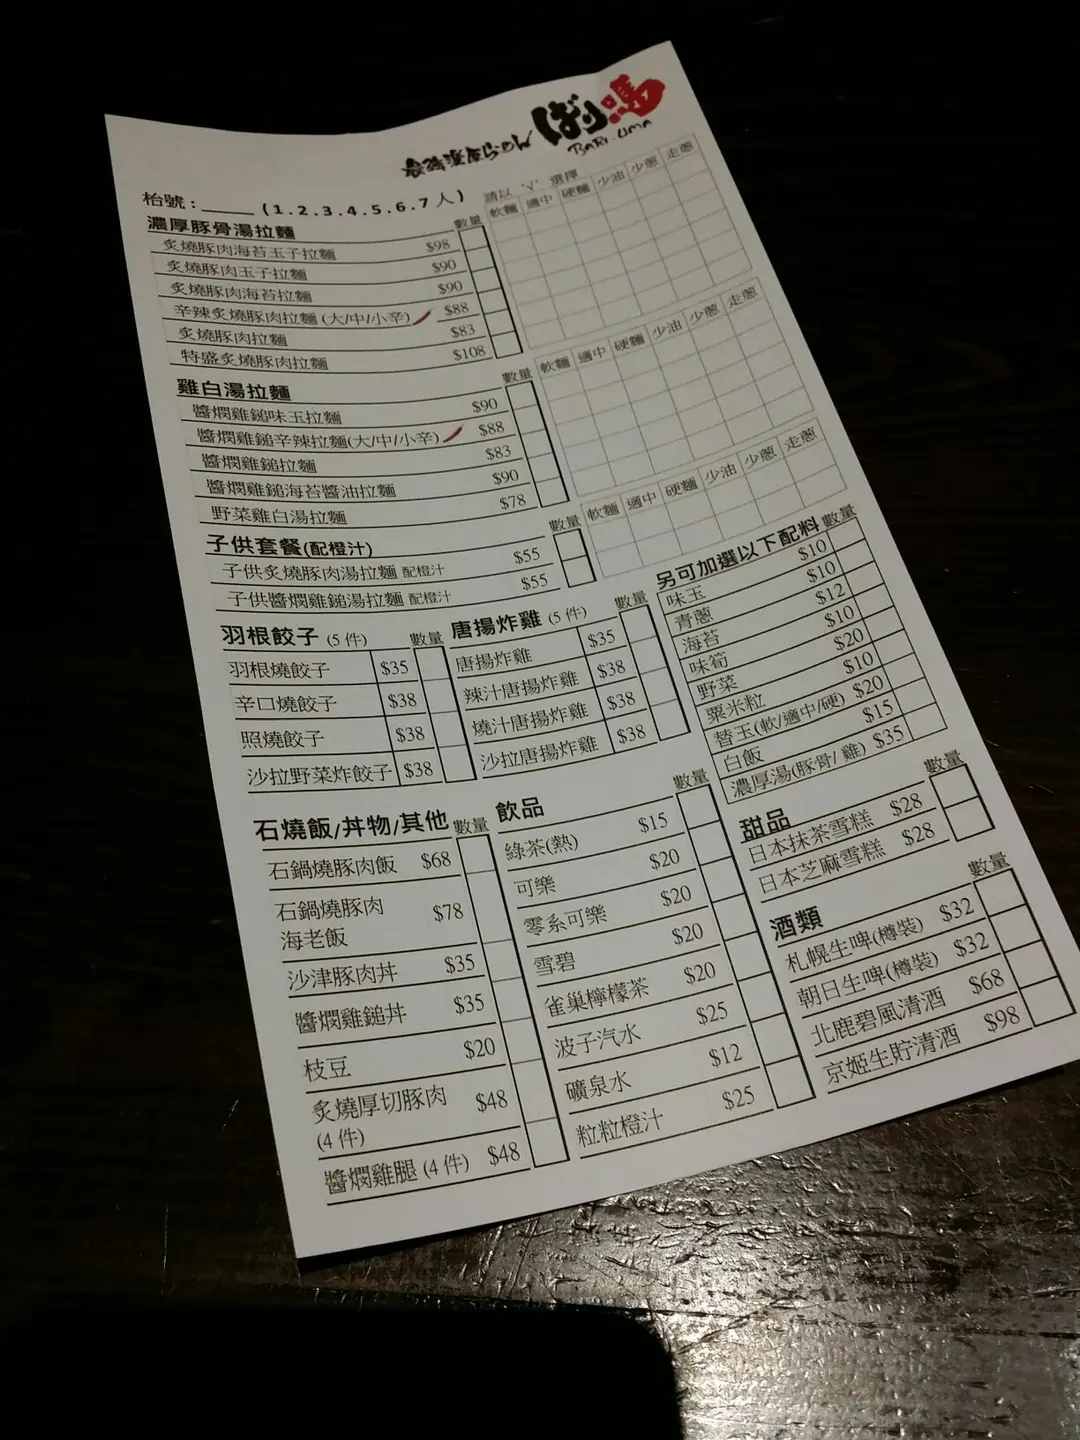 最強濃厚らーめん ばり馬
BARI-UMA
枱號：_____ (1.2.3.4.5.6.7人)
請以 '√' 選擇
濃厚豚骨湯拉麵 數量 軟麵 適中 硬麵 少油 少蔥 走蔥
炙燒豚肉海苔玉子拉麵 $98
炙燒豚肉玉子拉麵 $90
炙燒豚肉海苔拉麵 $90
辛辣炙燒豚肉拉麵 (大/中/小辛) $88
炙燒豚肉拉麵 $83
特盛炙燒豚肉拉麵 $108
雞白湯拉麵 數量 軟麵 適中 硬麵 少油 少蔥 走蔥
醬燜雞鎚味玉拉麵 $90
醬燜雞鎚辛辣拉麵(大/中/小辛) $88
醬燜雞鎚拉麵 $83
醬燜雞鎚海苔醬油拉麵 $90
野菜雞白湯拉麵 $78
子供套餐(配橙汁) 數量 軟麵 適中 硬麵 少油 少蔥 走蔥
子供炙燒豚肉湯拉麵 配橙汁 $55
子供醬燜雞鎚湯拉麵 配橙汁 $55
羽根餃子 (5 件) 數量
羽根燒餃子 $35
辛口燒餃子 $38
照燒餃子 $38
沙拉野菜炸餃子 $38
唐揚炸雞 (5 件) 數量
唐揚炸雞 $35
辣汁唐揚炸雞 $38
燒汁唐揚炸雞 $38
沙拉唐揚炸雞 $38
另可加選以下配料 數量
味玉 $10
青蔥 $10
海苔 $12
味筍 $10
野菜 $20
粟米粒 $10
替玉(軟/適中/硬) $20
白飯 $15
濃厚湯(豚骨/ 雞) $35
石燒飯/丼物/其他 數量
石鍋燒豚肉飯 $68
石鍋燒豚肉
海老飯 $78
沙津豚肉丼 $35
醬燜雞鎚丼 $35
枝豆 $20
炙燒厚切豚肉
(4 件) $48
醬燜雞腿 (4 件) $48
飲品 數量
綠茶(熱) $15
可樂 $20
零系可樂 $20
雪碧 $20
雀巢檸檬茶 $20
波子汽水 $25
礦泉水 $12
粒粒橙汁 $25
甜品 數量
日本抹茶雪糕 $28
日本芝麻雪糕 $28
酒類 數量
札幌生啤(樽裝) $32
朝日生啤(樽裝) $32
北鹿碧風清酒 $68
京姬生貯清酒 $98